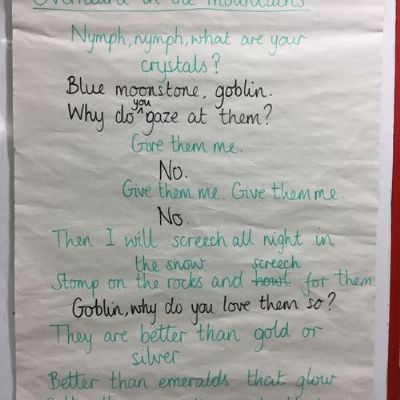 Overheard in the mountains
Nymph, nymph, what are your
crystals?
Blue moonstone, goblin.
Why do you gaze at them?
Give them me.
No.
Give them me. Give them me.
No.
Then I will screech all night in
the snow
Stomp on the rocks and howl screech for them.
Goblin, why do you love them so?
They are better than gold or
silver
Better than emeralds that glow